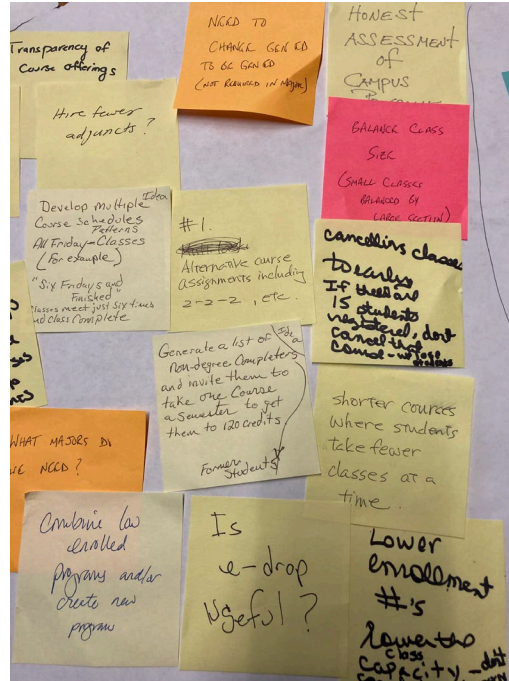 Transparency of
Course offerings
NEED TO
CHANGE GEN ED
TO BE GEN ED
(NOT REQUIRED IN MAJOR)
HONEST
ASSESSMENT
of
CAMPUS
Hire fewer
adjuncts?
BALANCE CLASS
SIZE
(SMALL CLASSES
BALANCED BY
LARGE SECTION)
Develop multiple Idea
Course Schedules
Patterns
All Friday-Classes
(for example)
"Six Fridays and
Finished"
Classes meet just six times
and class complete
#1.
Alternative course
assignments including
2-2-2, etc.
cancelling classes
to early
If there are
15 students
registered, dont
cancel that
course - we lose
students
Generate a list of Idea
non-degree completers
and invite them to
take one Course
a Semester to get
them to 120 credits
Former
Students
shorter cources
where students
take fewer
classes at a
time.
WHAT MAJORS DO
WE NEED?
Combine low
enrolled
programs and/or
create new
program
Is
e-drop
useful?
Lower
enrollment
#'s
Lower the
class
capacity - dont